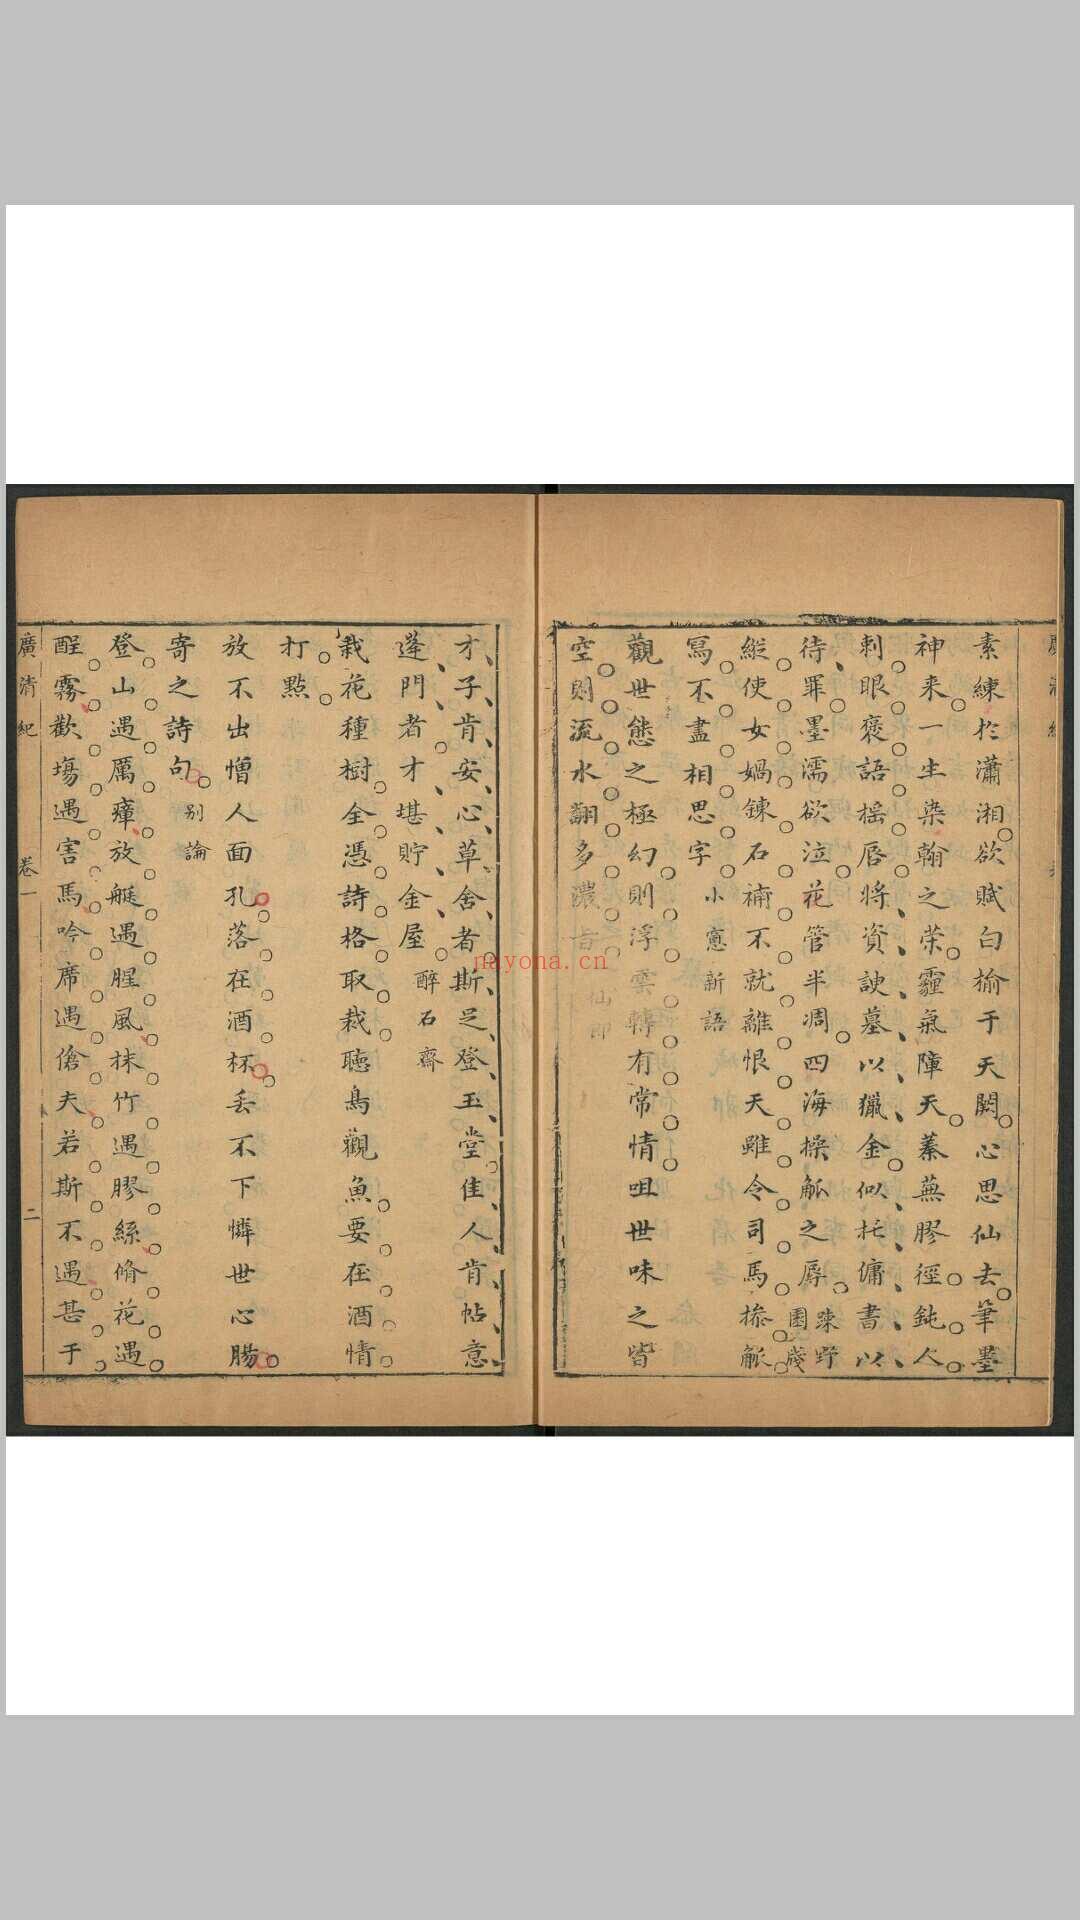 素練於瀟湘欲賦白榆于天闕心思仙去筆墨
神来一生染翰之荣霾氣障天蓁蕪膠徑鈍人
刺眼褒語榣唇將資諛墓以獵金似托傭書以
待罪墨濡欲泣花管半凋四海操觚之辱 陳野園箋
縱使女媧鍊石補不就離恨天雖令司馬摻觚
寫不盡相思字 小窻新語
觀世態之極幻則浮雲轉有常情咀世味之皆
空則流水翻多濃旨
才子肯安心草舍者斯足登玉堂佳人肯帖意
蓬門者才堪貯金屋 醉石齋
栽花種樹全憑詩格取裁聽鳥觀魚要在酒情
打點
放不出憎人面孔落在酒杯丢不下憐世心腸
寄之詩句 别論
登山遇厲瘴放艇遇腥風抹竹遇膠絲脩花遇
酲霧歡塲遇害馬吟席遇傖夫若斯不遇甚于
廣清紀 卷一 二
nayona.cn